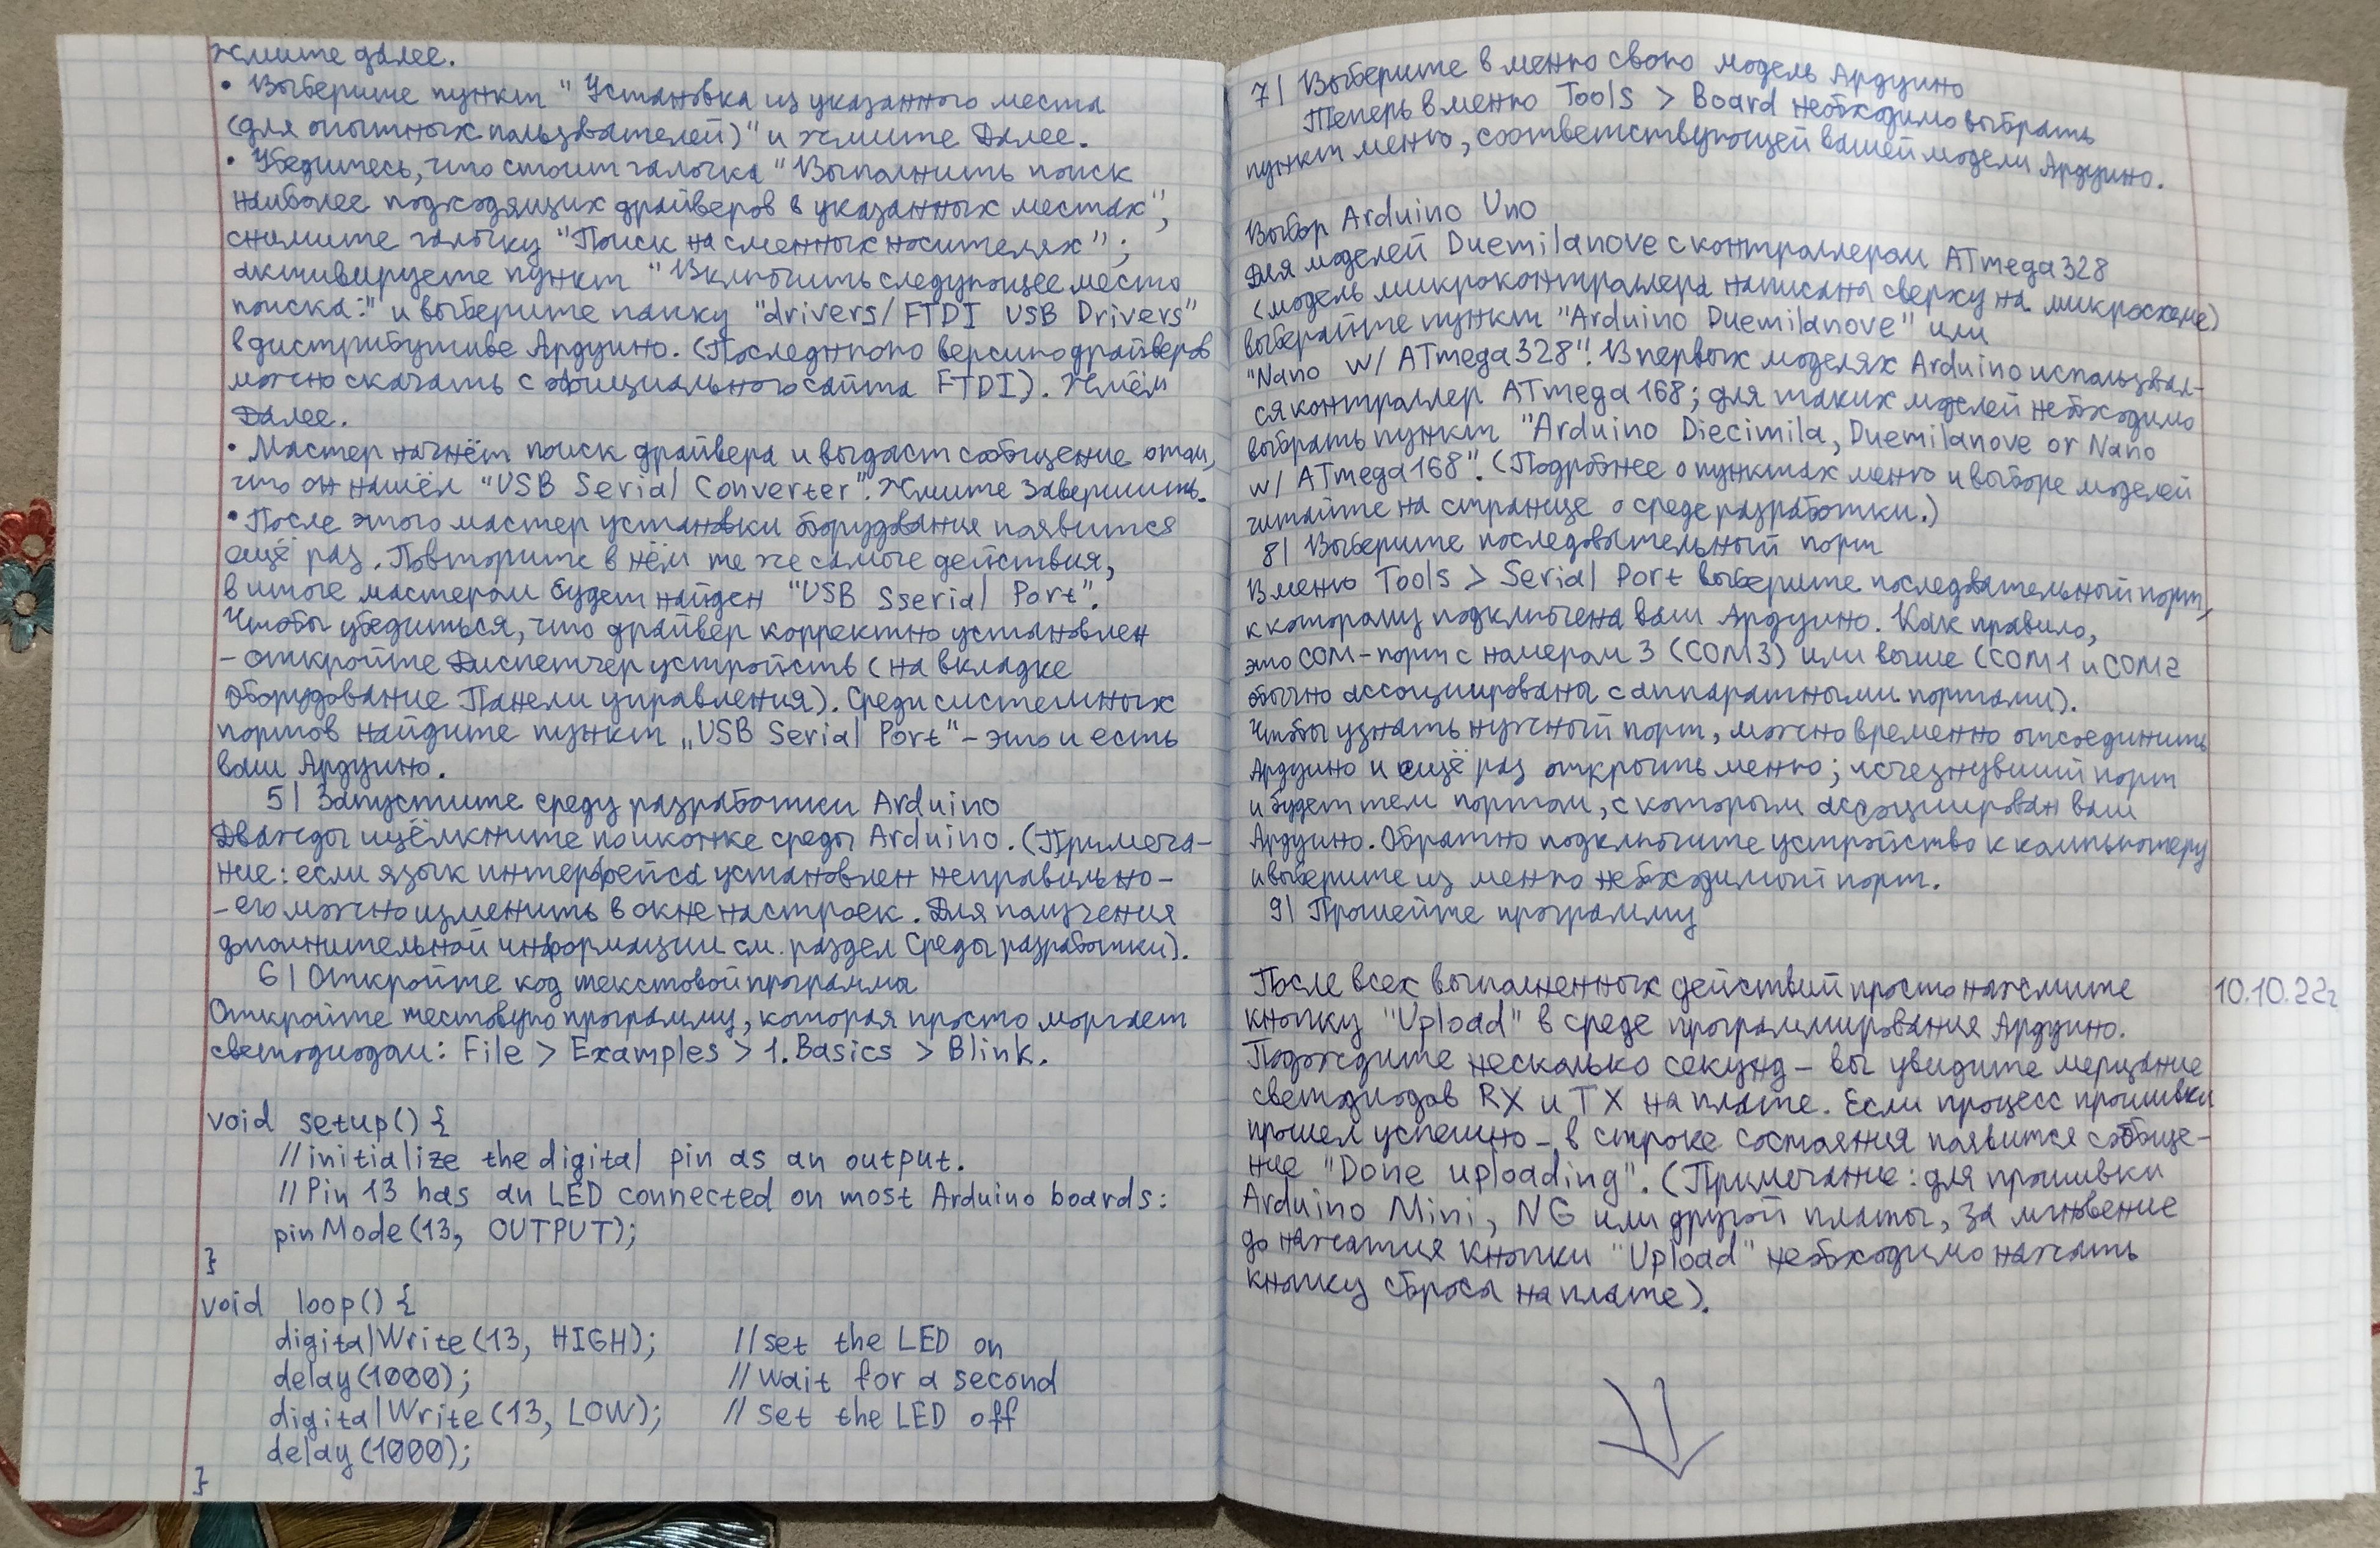 жмите далее.
• Выберите пункт "Установка из указанного места
(для опытных пользователей)" и жмите Далее.
• Убедитесь, что стоит галочка "Выполнить поиск
наиболее подходящих драйверов в указанных местах",
снимите галочку "Поиск на сменных носителях";
активируете пункт "Включить следующее место
поиска:" и выберите папку "drivers/FTDI USB Drivers"
в дистрибутиве Ардуино. (Последнюю версию драйверов
можно скачать с официального сайта FTDI). Жмём
Далее.
• Мастер начнёт поиск драйвера и выдаст сообщение о том,
что он нашёл "USB Serial Converter". Жмите Завершить.
• После этого мастер установки оборудования появится
ещё раз. Повторите в нём те же самые действия,
в итоге мастером будет найден "USB Sserial Port".
Чтобы убедиться, что драйвер корректно установлен
- откройте Диспетчер устройств (на вкладке
Оборудование Панели управления). Среди системных
портов найдите пункт „USB Serial Port" - это и есть
ваш Ардуино.
5| Запустите среду разработки Arduino
Дважды щёлкните по иконке среды Arduino. (Примеча-
ние: если язык интерфейса установлен неправильно -
- его можно изменить в окне настроек. Для получения
дополнительной информации см. раздел Среды разработки).
6| Откройте код текстовой программа
Откройте тестовую программу, которая просто моргает
светодиодом: File > Examples > 1. Basics > Blink.
void setup() {
//initialize the digital pin as an output.
//Pin 13 has an LED connected on most Arduino boards:
pinMode(13, OUTPUT);
}
void loop() {
digitalWrite(13, HIGH); //set the LED on
delay(1000); //wait for a second
digitalWrite(13, LOW); //set the LED off
delay(1000);
}
7| Выберите в меню свою модель Ардуино
Теперь в меню Tools > Board необходимо выбрать
пункт меню, соответствующей вашей модели Ардуино.
Выбор Arduino Uno
Для моделей Duemilanove с контроллером ATmega328
(модель микроконтроллера написана сверху на микросхеме)
выберайте пункт "Arduino Duemilanove" или
"Nano w/ ATmega328". В первых моделях Arduino использвал-
ся контроллер ATmega168; для таких моделей необходимо
выбрать пункт "Arduino Diecimila, Duemilanove or Nano
w/ ATmega168". (Подробнее о пунктах меню и выборе моделей
читайте на странице о среде разработки.)
8| Выберите последовательный порт
В меню Tools > Serial Port выберите последовательный порт,
к которому подключена ваш Ардуино. Как правило,
это COM-порт с номером 3 (COM3) или выше (COM1 и COM2
обычно ассоциированы с аппаратными портами).
Чтобы узнать нужный порт, можно временно отсоединить
Ардуино и ещё раз открыть меню; исчезнувший порт
и будет тем портом, с которым ассоциирован ваш
Ардуино. Обратно подключите устройство к компьютеру
и выберите из меню необходимый порт.
9| Прошейте программу
После всех выполненных действий просто нажмите 10.10.22г
кнопку "Upload" в среде программирования Ардуино.
Подождите несколько секунд - вы увидите мерцание
светодиодов RX и TX на плате. Если процесс прошивки
прошел успешно - в строке состояния появится сообще-
ние "Done uploading". (Примечание: для прошивки
Arduino Mini, NG или другой платы, за мгновение
до нажатия кнопки "Upload" необходимо нажать
кнопку сброса на плате).